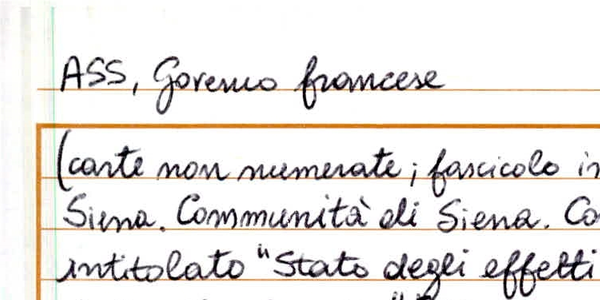 ASS, Governo francese
(carte non numerate; fascicolo in
Siena. Communità di Siena. Co
intitolato "Stato degli effetti